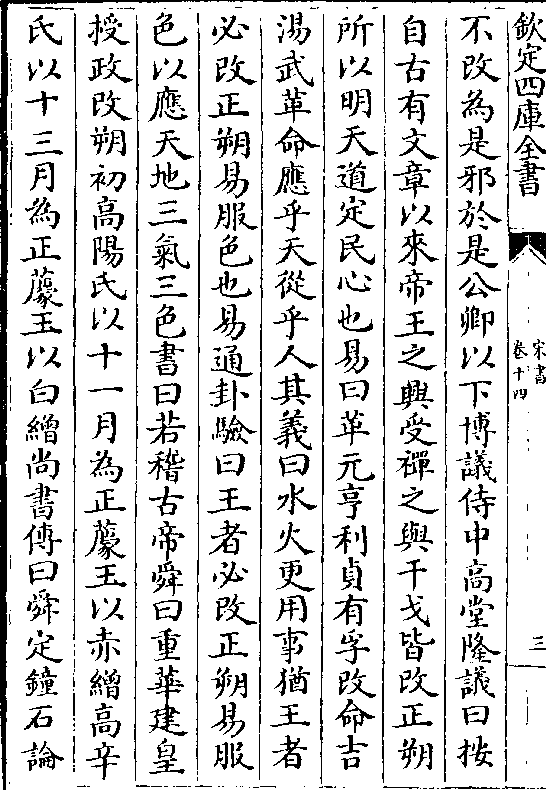 欽定四庫全書
宋書
卷十四
三
不改為是邪於是公卿以下博議侍中高堂隆議曰按
自古有文章以來帝王之興受禪之與干戈皆改正朔
所以明天道定民心也易曰革元亨利貞有孚改命吉
湯武革命應乎天從乎人其義曰水火更用事猶王者
必改正朔易服色也易通卦驗曰王者必改正朔易服
色以應天地三氣三色書曰若稽古帝舜曰重華建皇
授政改朔初高陽氏以十一月為正薦玉以赤繒高辛
氏以十三月為正薦玉以白繒尚書傳曰舜定鐘石論